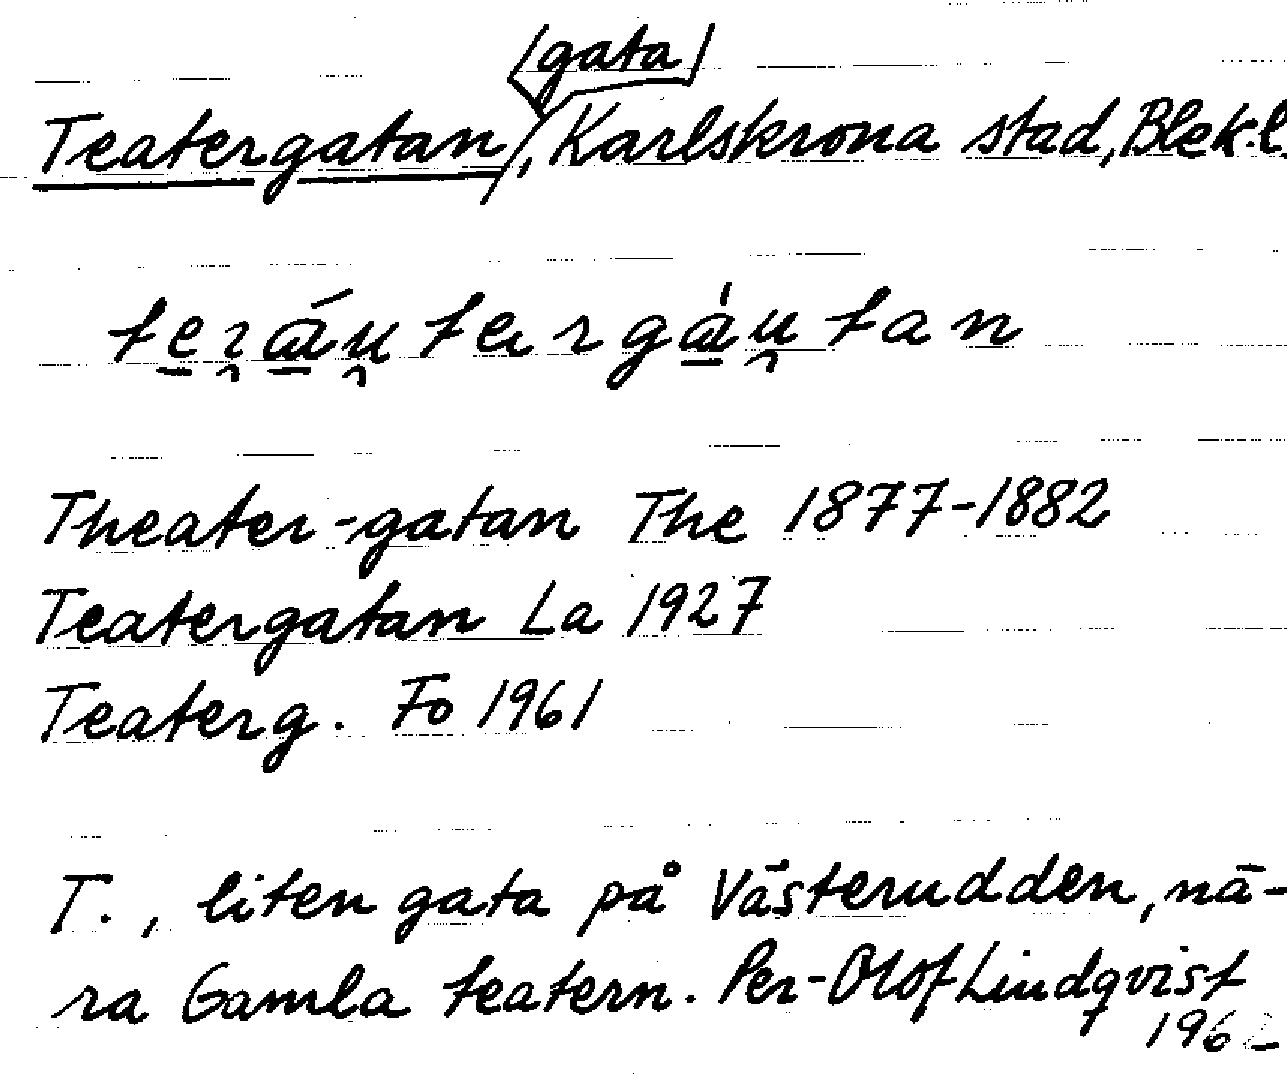 /gata/
Teatergatan, Karlskrona stad, Blek.l.
Theater-gatan The 1877-1882
Teatergatan La 1927
Teaterg. Fo 1961
T., liten gata på Västerudden, nä-
ra Gamla teatern. Per-Olof Lindqvist